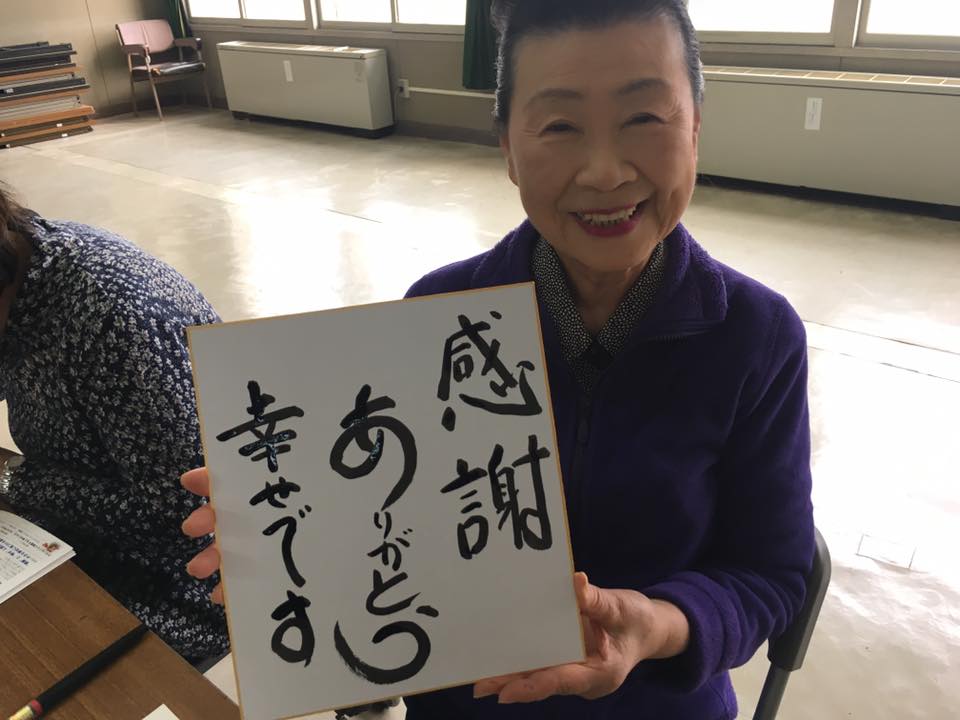 感謝
ありがとう
幸せです